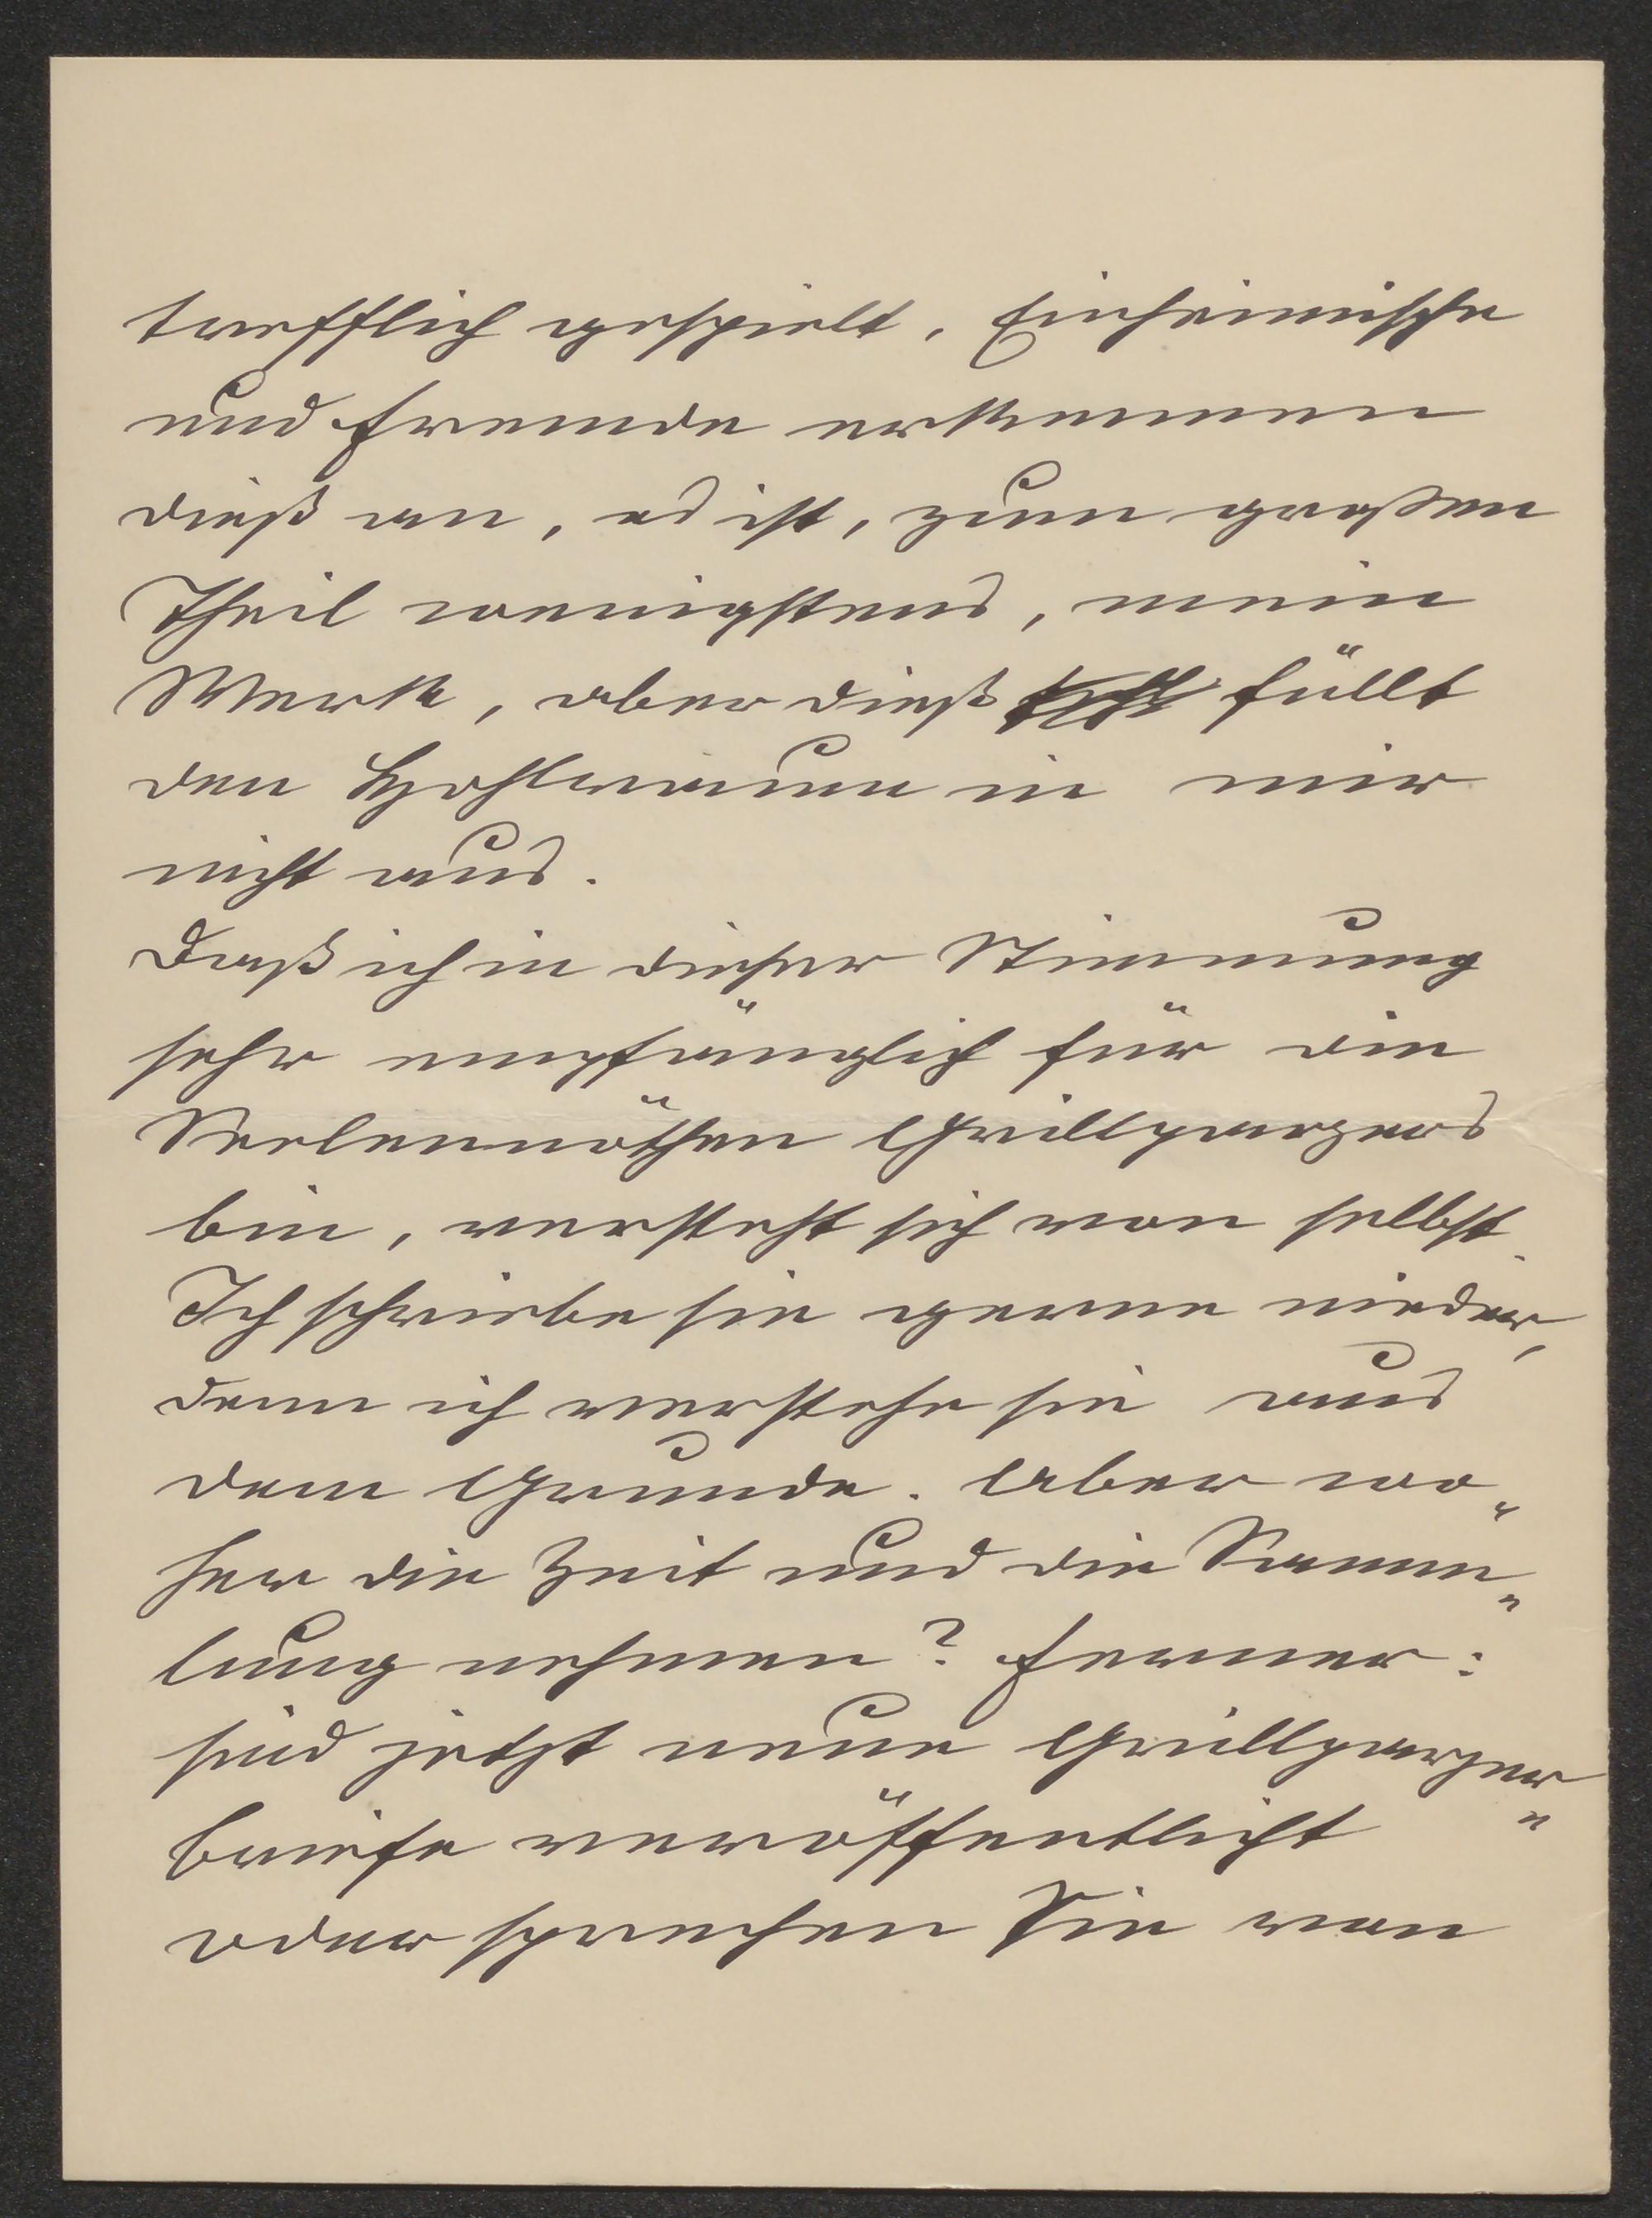 trefflich gespielt. Einheimische
und Fremde erkennen
dieß an, es ist, zum großen
Theil wenigstens, mein
Werk, aber dieß füllt
den Hohlraum in mir
nicht aus.
Daß ich in dieser Stimmung
sehr empfänglich für die
Seelennöthen Grillparzers
bin, versteht sich von selbst.
Ich schriebe sie gerne nieder,
denn ich verstehe sie aus
dem Grunde. Aber wo„
her die Zeit und die Samm„
lung nehmen? Ferner:
sind jetzt neue Grillparzer„
briefe veröffentlicht
oder sprechen Sie von